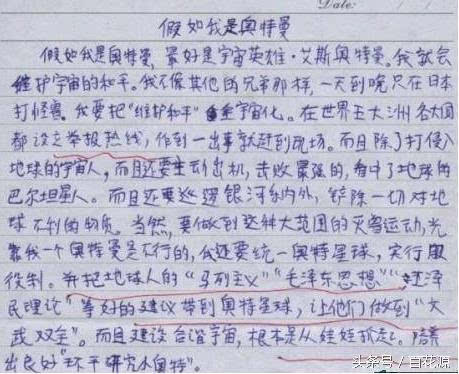 Date:
假如我是奥特曼
假如我是奥特曼,最好是宇宙英雄·艾斯奥特曼。我就会
维护宇宙的和平。我不像其他的兄弟那样,一天到晚只在日本
打怪兽。我要把“维护和平”宇宙化。在世界五大洲各大国
都设立举报热线,作到一出事就赶到现场。而且除了打侵入
地球的宇宙人,而且还要主动出机,击败嚣张的,看中了地球的
巴尔坦星人。而且还要巡逻银河系内外,铲除一切对地
球不利的物质。当然,要做到这种大范围的灭害运动,光
靠我一个奥特曼是不行的,我还要统一奥特星球,实行服
役制。并把地球人的“马列主义”“毛泽东思想”泽
民理论”等好的建议带到奥特星球,让他们做到“文
武双全”。而且建设合谐宇宙,根本是从娃娃抓起。培养
出良好“环平研究小奥特”。
头条号/百花源